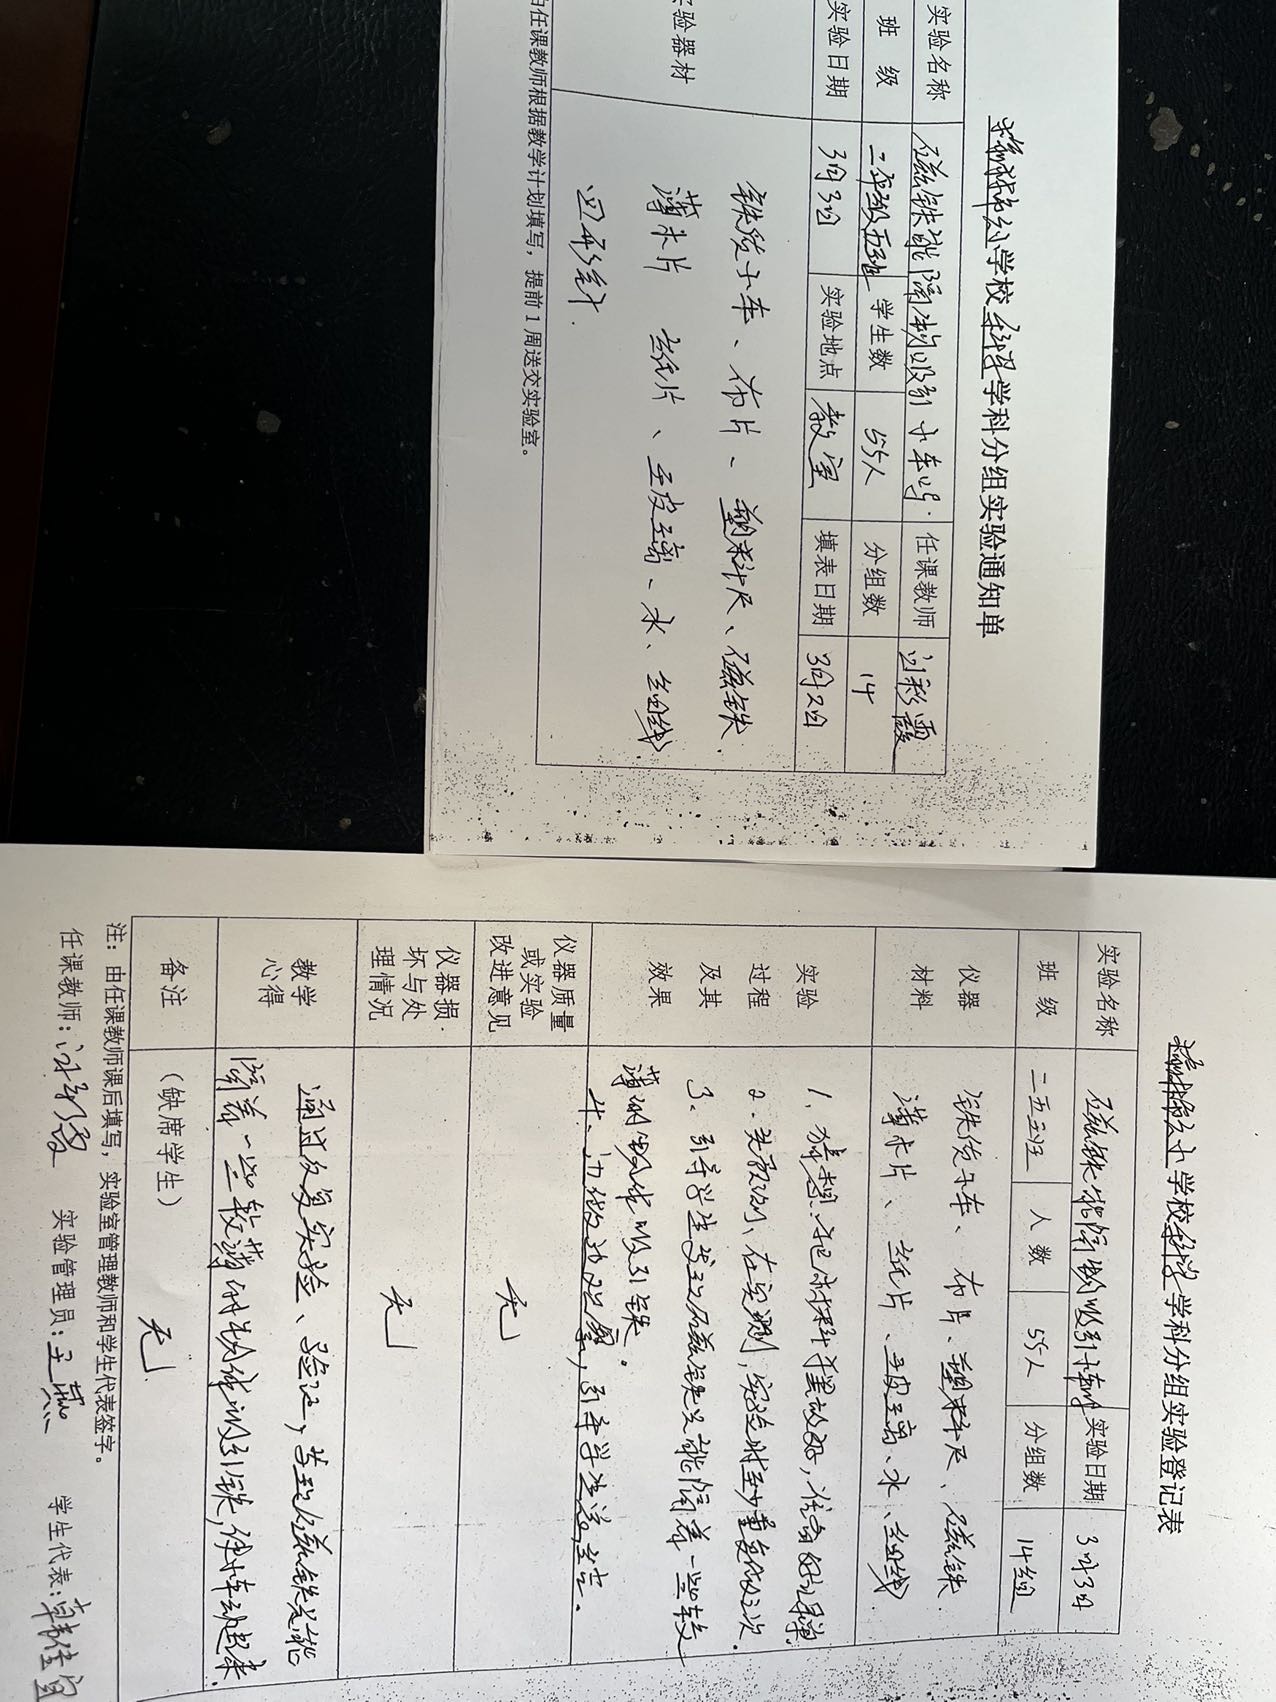 小学校科学学科分组实验通知单
实验名称 磁铁能隔物吸引小车吗. 任课教师 闫彩霞
班 级 二年级五班 学生数 55人 分组数 14
实验日期 3月3日 实验地点 教室 填表日期 3月2日
验器材
铁质小车、布片、塑料尺、磁铁.
薄木片 纸片、玻璃、水、细线
回形针.
由任课教师根据教学计划填写，提前1周送交实验室。
小学校科学学科分组实验登记表
实验名称 磁铁能隔物吸引小车吗 实验日期 3月3日
班 级 二五班 人 数 55人 分组数 14组
仪器
材料
铁质小车、布片、塑料尺、磁铁
薄木片、纸片、玻璃、水、细线
实验
过程
及其
效果
1、猜想.把材料摆放好,作好记录
2、实验时至少重复做3次.
3、引导学生发现磁铁能隔着一些较
薄的物体吸引铁。
4、边做边观察,引导学生总结.
仪器质量
或实验
改进意见
无
仪器损
坏与处
理情况
无
教学
心得
通过反复实验、验证,发现磁铁能
隔着一些较薄的物体吸引铁,使小车动起来.
备注 (缺席学生) 无
注：由任课教师课后填写，实验室管理教师和学生代表签字。
任课教师: 闫彩霞 实验管理员: 王燕 学生代表: 韩佳宜